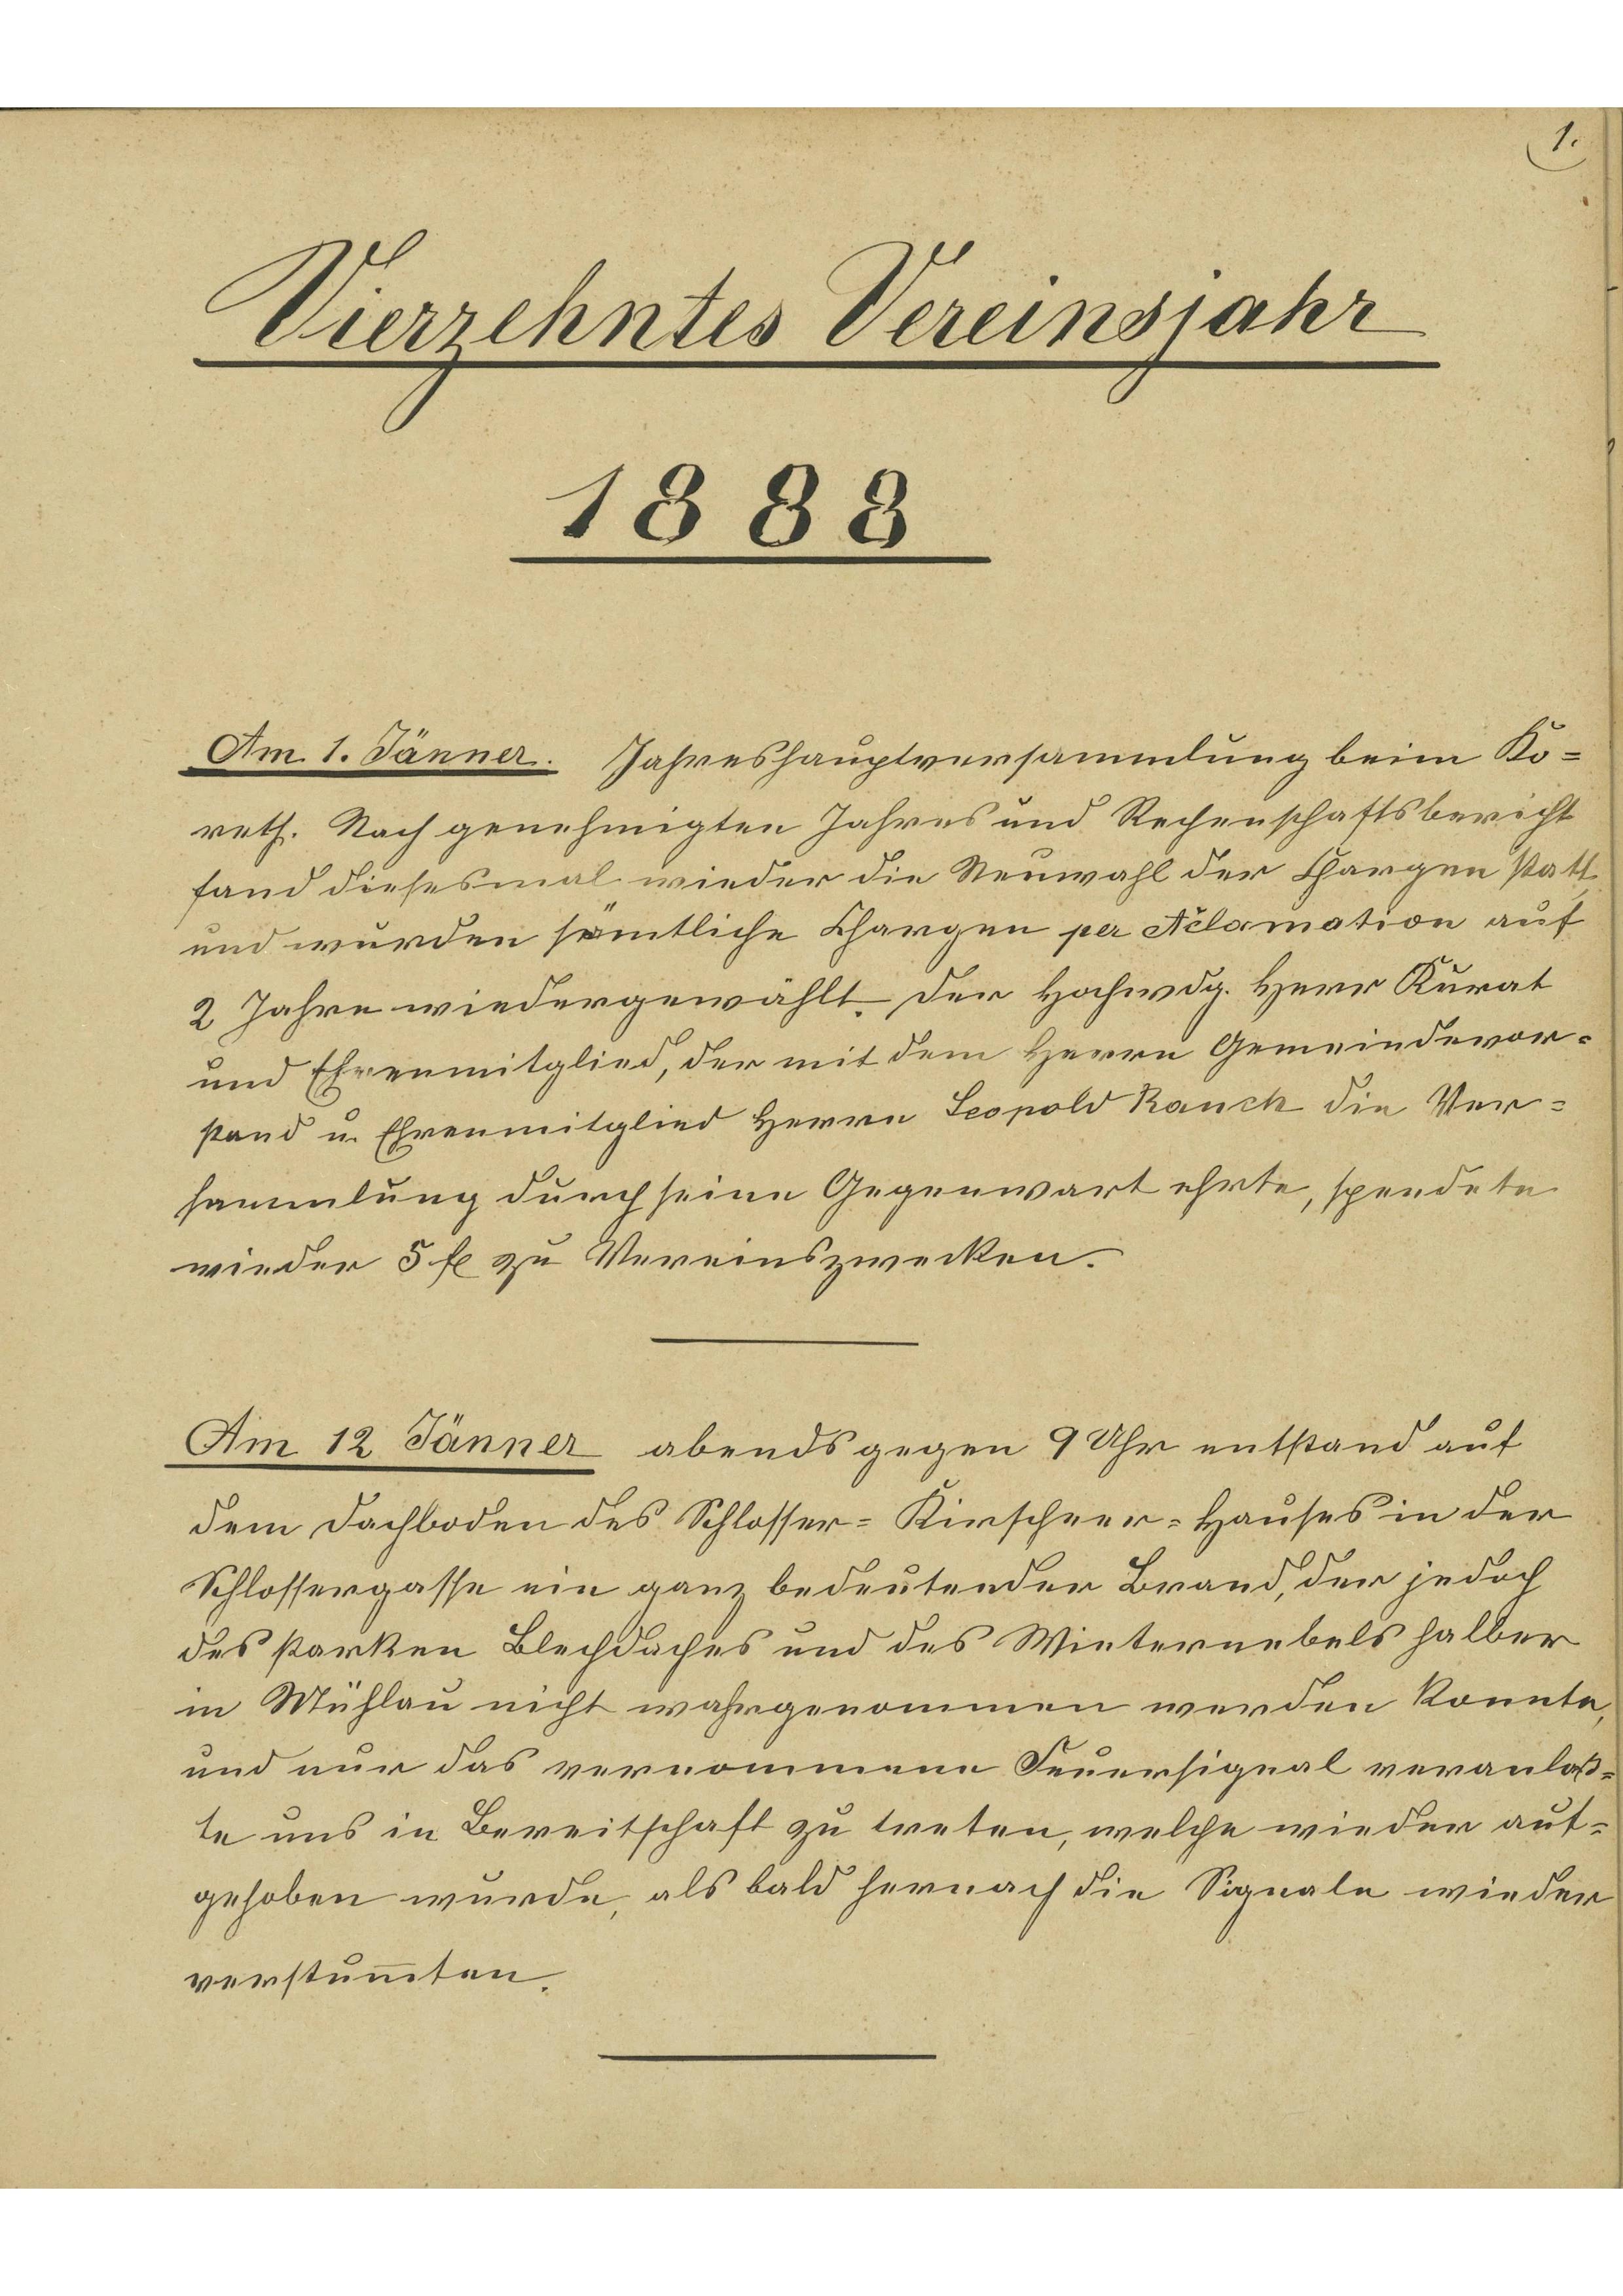 1.
Vierzehntes Vereinsjahr
1888
Am 1. Jänner. Jahreshauptversammlung beim Ko=
reth. Nach genehmigten Jahres und Rechenschaftsbericht
fand diesesmal wieder die Neuwahl der Chargen statt
und wurden sämtliche Chargen per Aclamation auf
2 Jahre wiedergewählt. Der Hochwdg. Herr Kurat
und Ehrenmitglied, der mit dem Herrn Gemeindevor=
stand u. Ehrenmitglied Herrn Leopold Rauch die Ver=
sammlung durch seine Gegenwart ehrte, spendete
wieder 5 fl zu Vereinszwecken.
Am 12 Jänner abends gegen 9 Uhr entstand auf
dem Dachboden des Schlosser= Kirscheer= Hauses in der
Schlossergasse ein ganz bedeutender Brand, der jedoch
des starken Blechdaches und des Winternebels halber
in Mühlau nicht wahrgenommen werden konnte,
und nur das vernommene Feuersignal veranlaß=
te uns in Bereitschaft zu treten, welche wieder auf=
gehoben wurde, als bald hernach die Signale wieder
verstum̅ten.